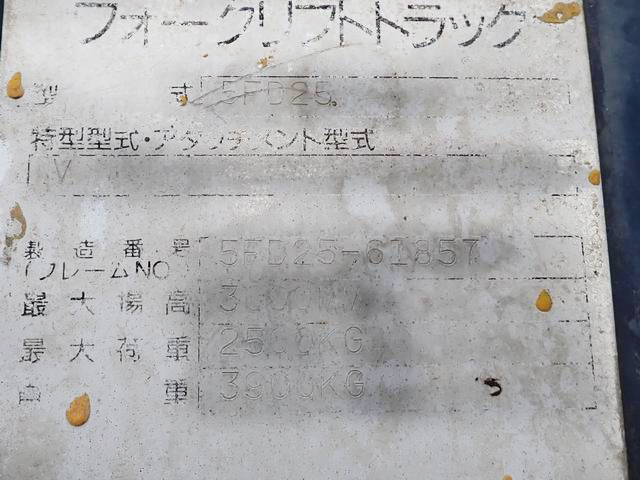 フォークリフトトラック
型 式 5FD25
特型型式・アタッチメント型式
V
製造番号 5FD25-61857
(フレームNO)
最大揚高 3000MM
最大荷重 2500KG
自 重 3900KG